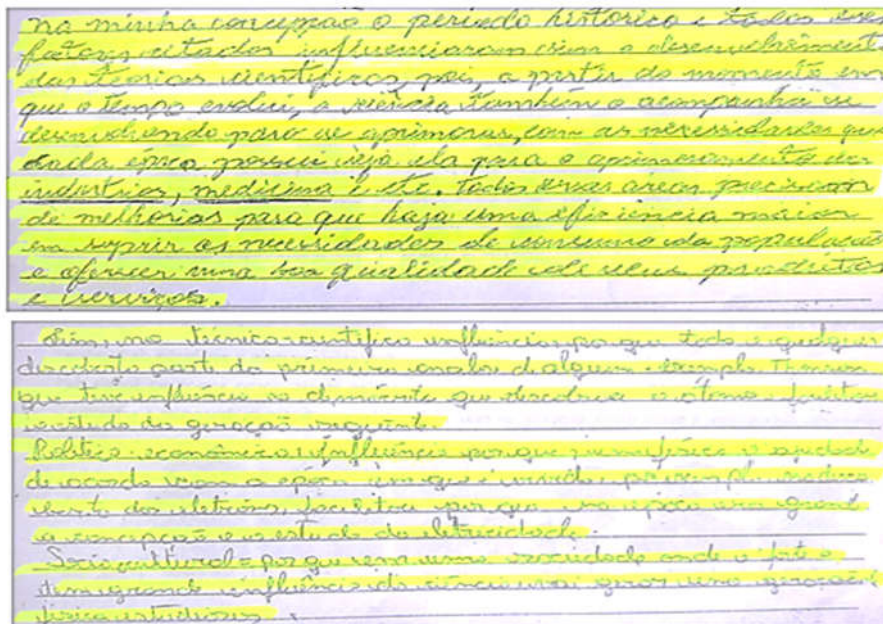 na minha concepção o periodo histórico e todos esses
fatores citados influenciaram sim o desenvolviment
das teorias cientificas, pois, a partir do momento em
que o tempo evolui, a ciência também o acompanha se
desenvolvendo para se aprimorar, com as necessidades que
cada época possui seja ela para o aprimoramento
industrias, medicina e etc. todas essas áreas precisam
de melhorias para que haja uma eficiência maior
em suprir as necessidades de consumo da população
e oferecer uma boa qualidade de seus produtos
e serviços.
Sim, no técnico científico influência, porque toda e qualquer
descoberta parte do primeiro de alguem exemplo
que teve influência de que o átomo
estudo da geração seguinte.
Politico econômico influência porque
de acordo com a época em que é por exemplo
dos eletrons, facilitou por que na época era grande
a concepção e o estudo da eletricidade.
Socio cultural = por que uma sociedade onde o
tem grande influência da ciência vai gerar uma geração